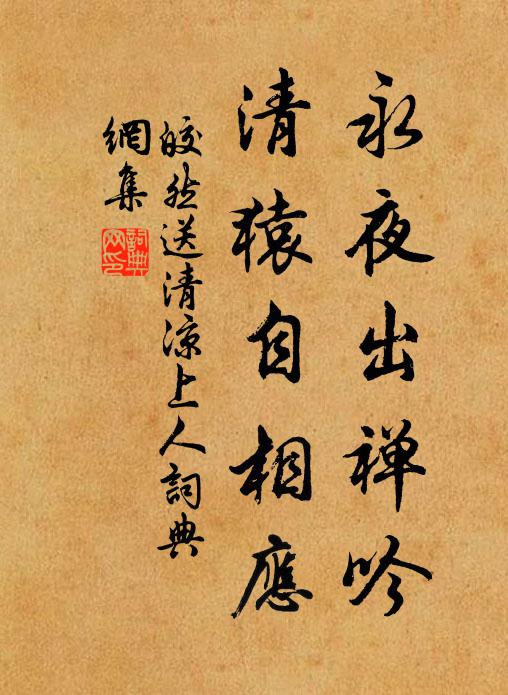 永夜出禅吟
清猿自相應
皎然送清涼上人詞典
網集
詞典网印